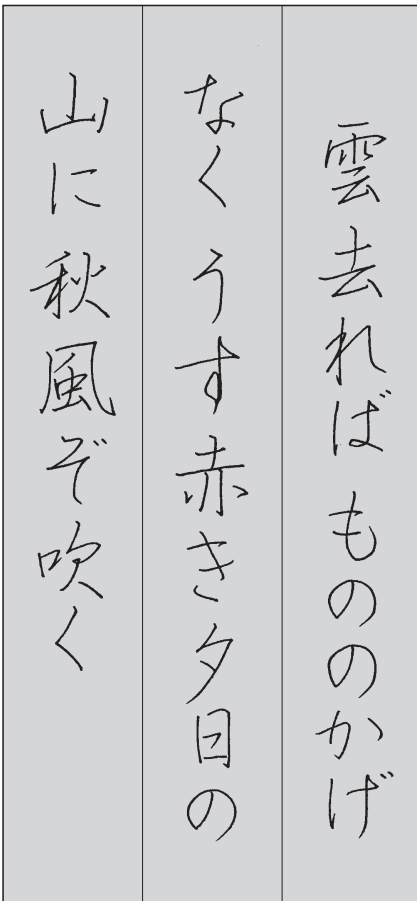 雲去ればもののかげ
なくうす赤き夕日の
山に秋風ぞ吹く